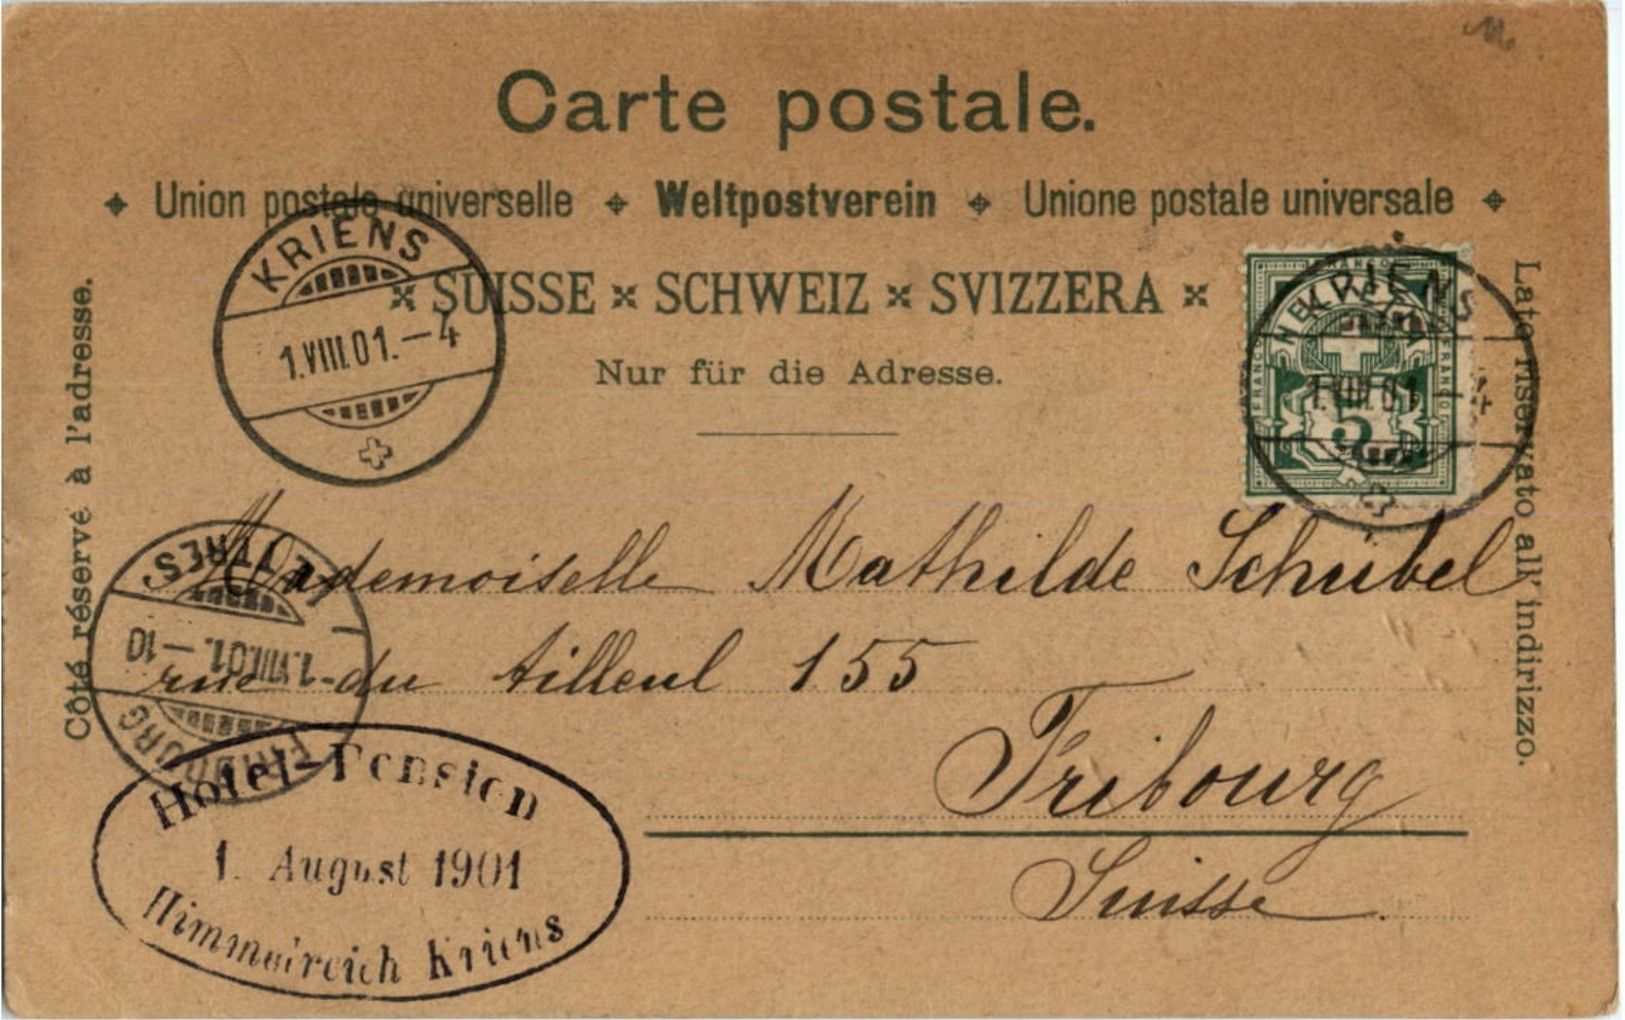 Carte postale.
Union postale universelle Weltpostverein Unione postale universale
SUISSE SCHWEIZ SVIZZERA
Nur für die Adresse.
Côté réservé à l'adresse.
Lato riservato all' indirizzo.
KRIENS
1.VIII.01.-4
HELVETIA
FRANCO
FRANCO
FRANCO
5
KRIENS
1.VIII.01.-4
Mademoiselle Mathilde Schubel
rue du tilleul 155
Fribourg
Suisse
FRIBOURG
1.VIII.01.-10
LETTRES.
Hotel-Pension
1. August 1901
Himmelreich Kriens